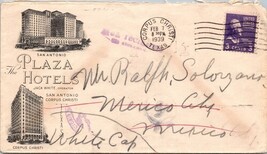 SAN ANTONIO
The PLAZA
HOTELS
JACK WHITE, OPERATOR
SAN ANTONIO
CORPUS CHRISTI
CORPUS CHRISTI
CORPUS CHRISTI
FEB 7
1939
TEXAS
3
Mr Ralph Solorzano
Mexico City
Mexico
White Cap